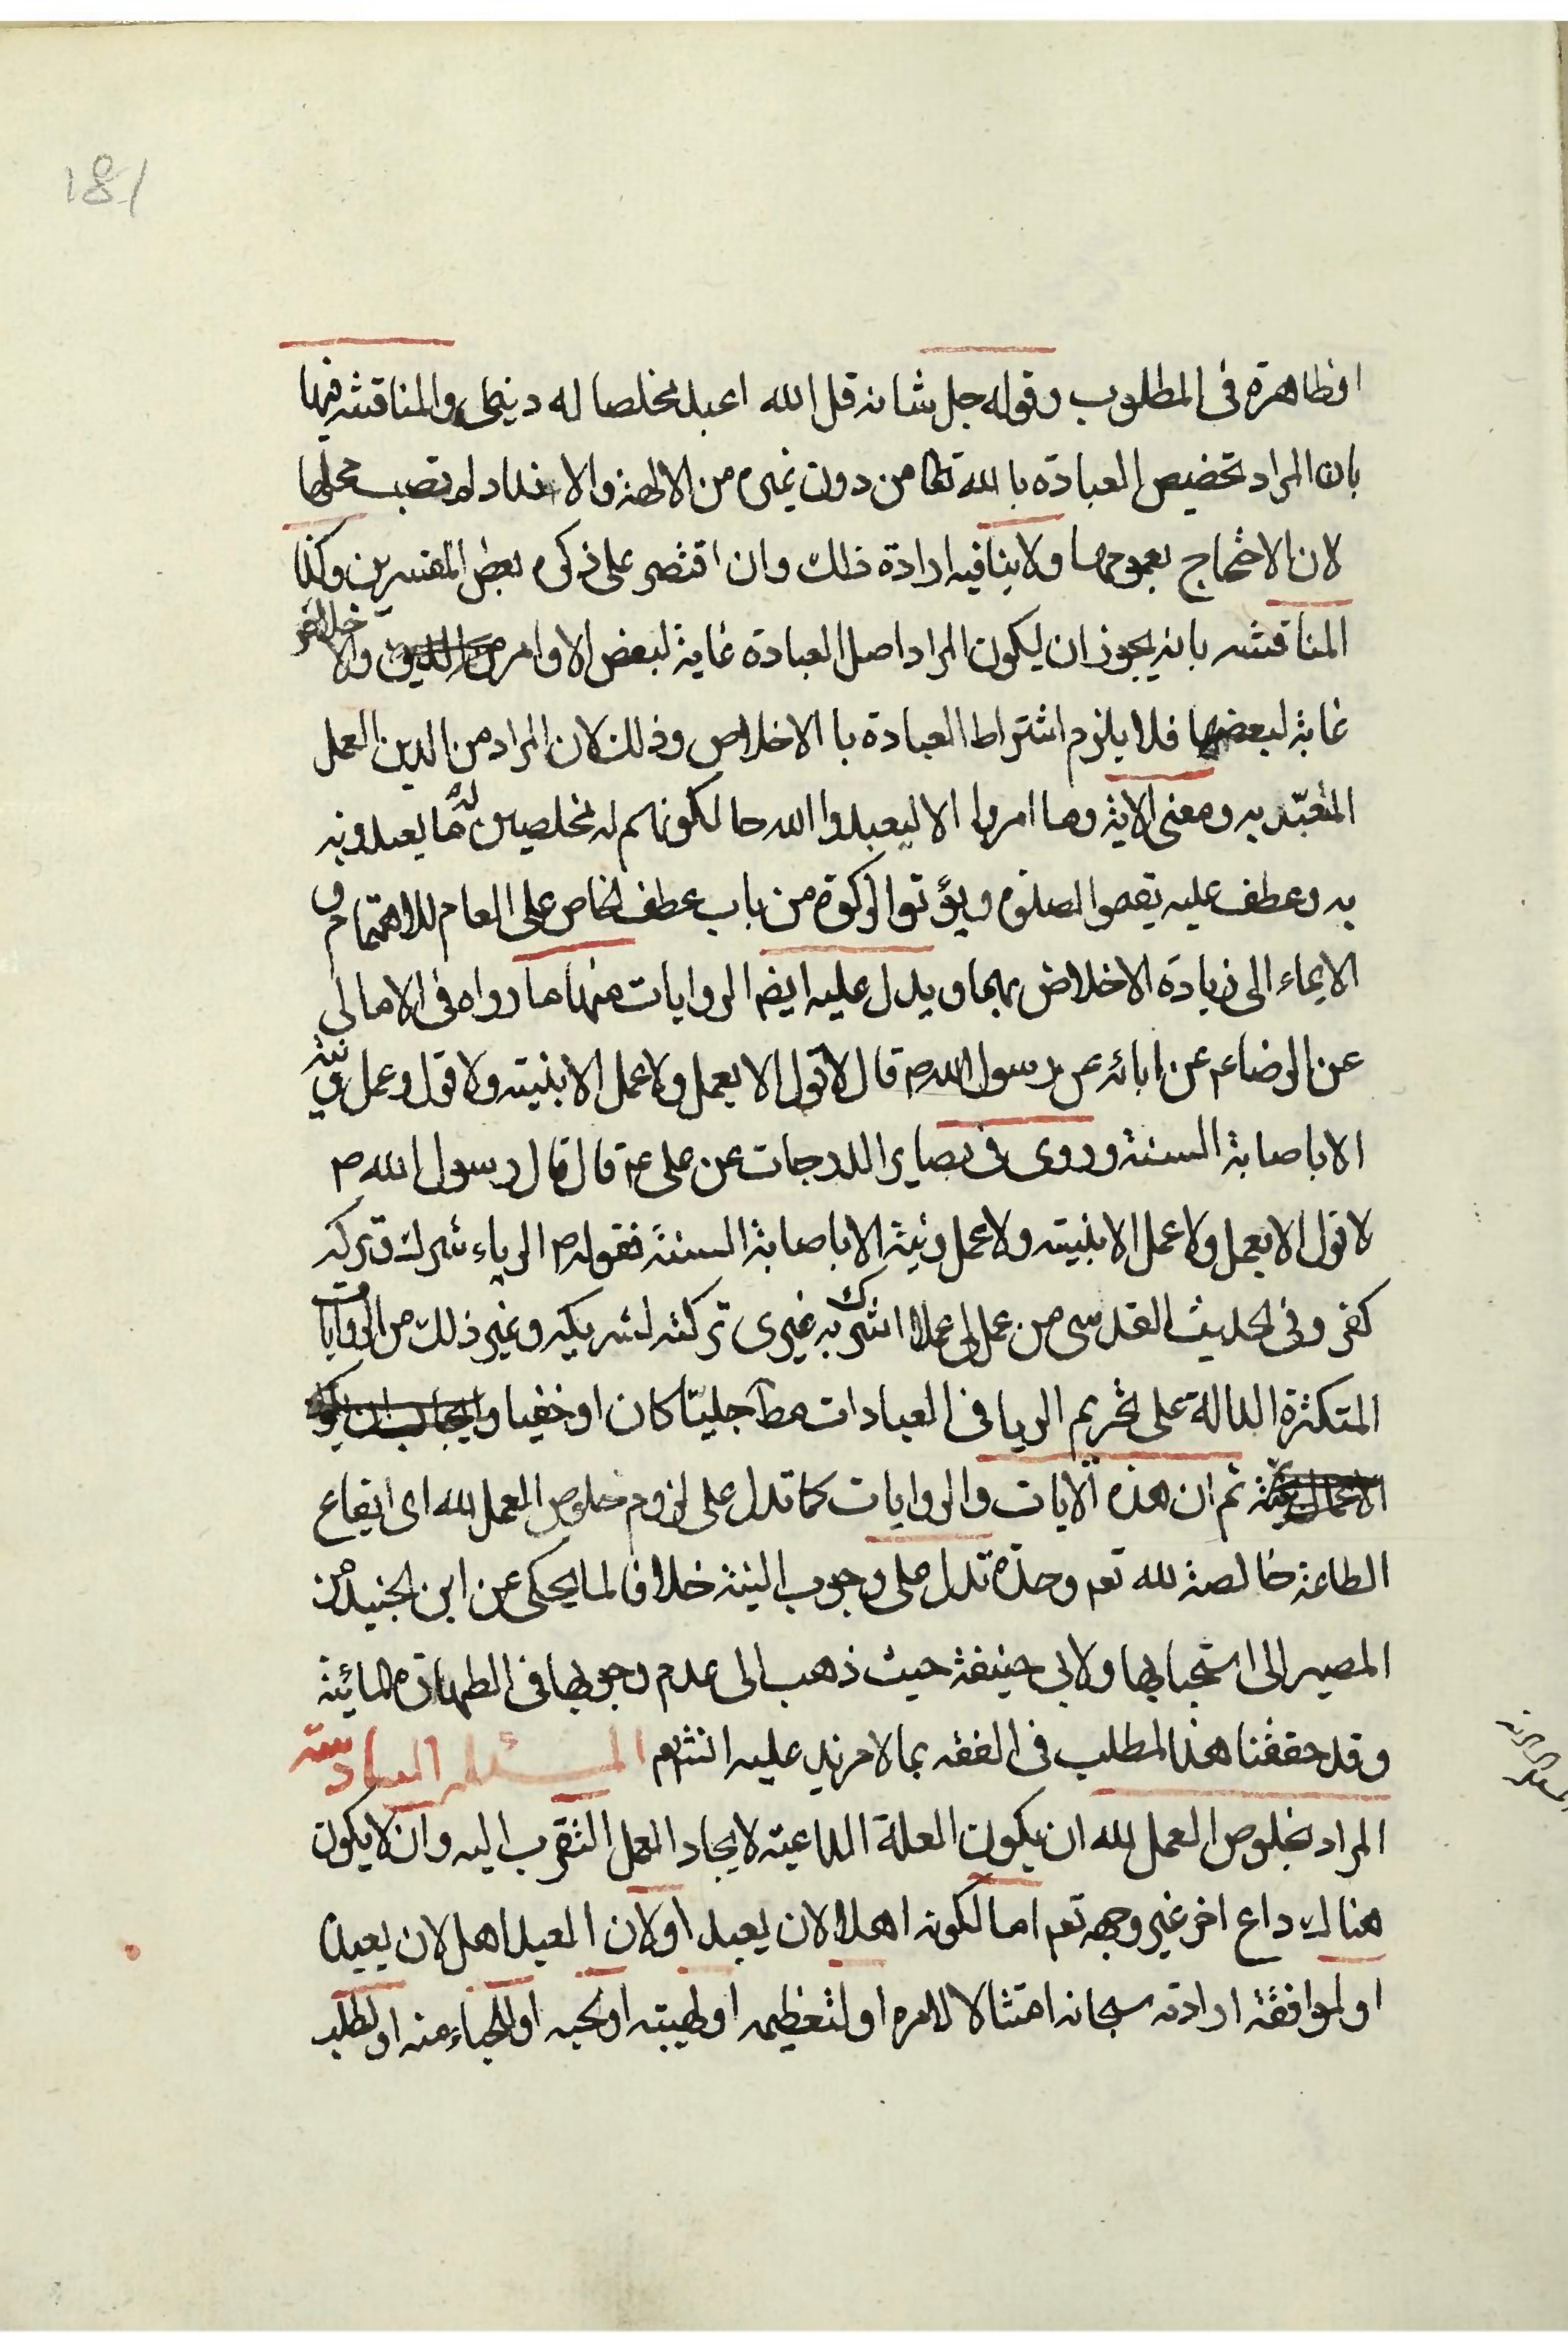 181
او ظاهرة فى المطلوب وقوله جل شانه قل الله اعبد مخلصا له دينى والمناقشه فيها
بان المراد تخصيص العبادة بالله تعا من دون غيره من الالهة والانداد لم تصب محلها
لان الاحتجاج بعمومها ولا ينافيه ارادة ذلك وان اقتصر على ذكره بعض المفسرين وكذا
المناقشه بانه يجوز ان ليكون المراد اصل العبادة غاية لبعض الاوامر والاخلاص
غاية لبعضها فلا يلزم اشتراط العبادة با الاخلاص وذلك لان المراد من الدين العمل
المتعبّد به ومعنى الاية وما امروا الا ليعبدوا الله حا لكونهم له مخلصين له ما يعبدونه
به وعطف عليه يقيموا الصلوة ويؤتوا الزكوة من باب عطف الخاص على العام للاهتمام و
الايماء الى زيادة الاخلاص بهما ويدل عليه ايضم الروايات منها ما رواه فى الامالى
عن الرضا ع عن ابائه عن رسول الله ص قال لا قول الا بعمل ولا عمل الا بنيته ولا قول وعمل ونية
الا باصابة السنة وروى فى بصاير الدرجات عن على ع قال قال رسول الله ص
لا قول الا بعمل ولا عمل الا بنيته ولا عمل ونية الا باصابة السنة فقوله ص الرياء شرك وتركه
كفر وفى الحديث القدسى من عمل لى عملا اشرك به غيرى تركته لشريكه وغير ذلك من الروايات
المتكثرة الدالة على تحريم الريا فى العبادات مط جليّا كان او خفيا
ثم ان هذه الايات والروايات كما تدل على لزوم خلوص العمل لله اى ايقاع
الطاعة خالصة لله تعم وحده تدل على وجوب النية خلافا لما يحكى عن ابن الجنيد من
المصير الى استحبابها ولابى حنيفة حيث ذهب الى عدم وجوبها فى الطهارة المائية
وقد حققنا هذا المطلب فى الفقه بما لا مزيد عليه انتهم المسئلة السادسة
المراد بخلوص العمل لله ان يكون العلة الداعيته لايجاد العمل التقرب اليه وان لا يكون
هناك داع اخر غير وجهه تعم اما لكونه اهلا لان يعبد او لان العبد اهل لان يعبد
او لموافقة ارادته سبحانه امتثالا لامره او لتعظيمه او لهيبته او لحبه او للحياء منه او لطلب